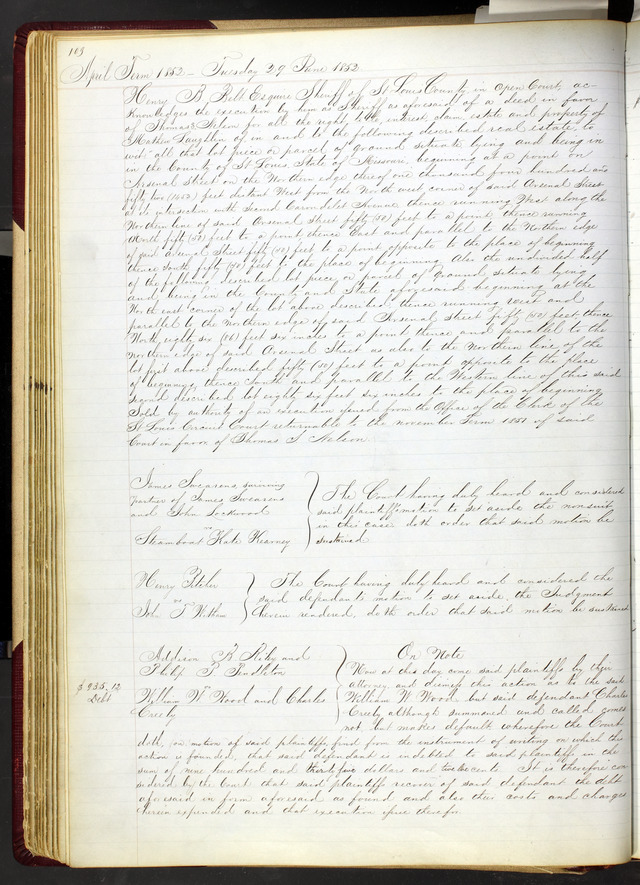 103
April Term 1852 – Tuesday 29 June 1852
Henry B Belt Esquire Sheriff of St Louis County in open Court, ac-
knowledges the execution by him as Sheriff as aforesaid of a deed in favor
of Thomas Nelson for all the right, title, interest, claim, estate and property of
Mathew Laughlin of in and to the following described real estate, to
wit: all that lot piece or parcel of ground situate lying and being in
in the County of St Louis, State of Missouri, beginning at a point on
Arsenal Street on the Northern edge thereof one thousand four hundred and
fifty two (1452) feet distant West from the North west corner of said Arsenal Street
at its intersection with Second Carondelet Avenue thence running West along the
Northern line of said Arsenal Street fifty (50) feet to a point thence running
North fifty (50) feet to a point thence East and parallel to the Northern edge
of said Arsenal Street fifty (50) feet to a point opposite to the place of beginning
thence South fifty (50) feet to the place of beginning. Also the undivided half
of the following described lot piece or parcel of Ground situate lying
and being in the County and State aforesaid beginning at the
North east corner of the lot above described, thence running west and
parallel to the Northern edge of said Arsenal Street fifty (50) feet; thence
North eighty six (86) feet six inches to a point thence and parallel to the
Northern edge of said Arsenal Street as also to the Northern line of the
lot first above described fifty (50) feet to a point opposite to the place
of beginning, thence South and parallel to the Western line of this said
second described lot eighty six feet six inches to the place of beginning
Sold by authority of an execution issued from the Office of the Clerk of the
St Louis Circuit Court returnable to the November Term 1851 of said
Court in favor of Thomas S Nelson
James Swearens, surviving
partner of James Swearens
and John Lockwood
vs
Steamboat Kate Kearney
The Court having duly heard and considered
said plaintiff motion to set aside the nonsuit
in this case doth order that said motion be
sustained
Henry Pitcher
vs
John T Witham
The Court having duly heard and considered the
said defendants motion to set aside, the Judgment
herein rendered, doth order that said motion be sustained
$935.12
Debt
Addison B Riby and
Philip P Pendleton
vs
William W Wood and Charles
Creely
On Note
Now at this day come said plaintiffs by their
attorney and dismiss this action as to the said
William W Wood but said defendant Charles
Creely although summoned and called comes
not but makes default wherefore the Court
doth, on motion of said plaintiffs, find from the instrument of writing on which this
action is founded, that said defendant is indebted to said plaintiffs in the
sum of nine hundred and thirty five dollars and twelve cents. It is therefore con-
sidered by the Court that said plaintiffs recover of said defendant the debt
aforesaid in form aforesaid as found and also their costs and charges
herein expended and that execution issue therefor.